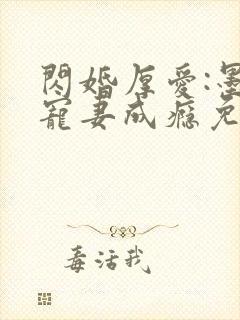 閃婚厚愛:墨
寵妻成癮免
毒活我